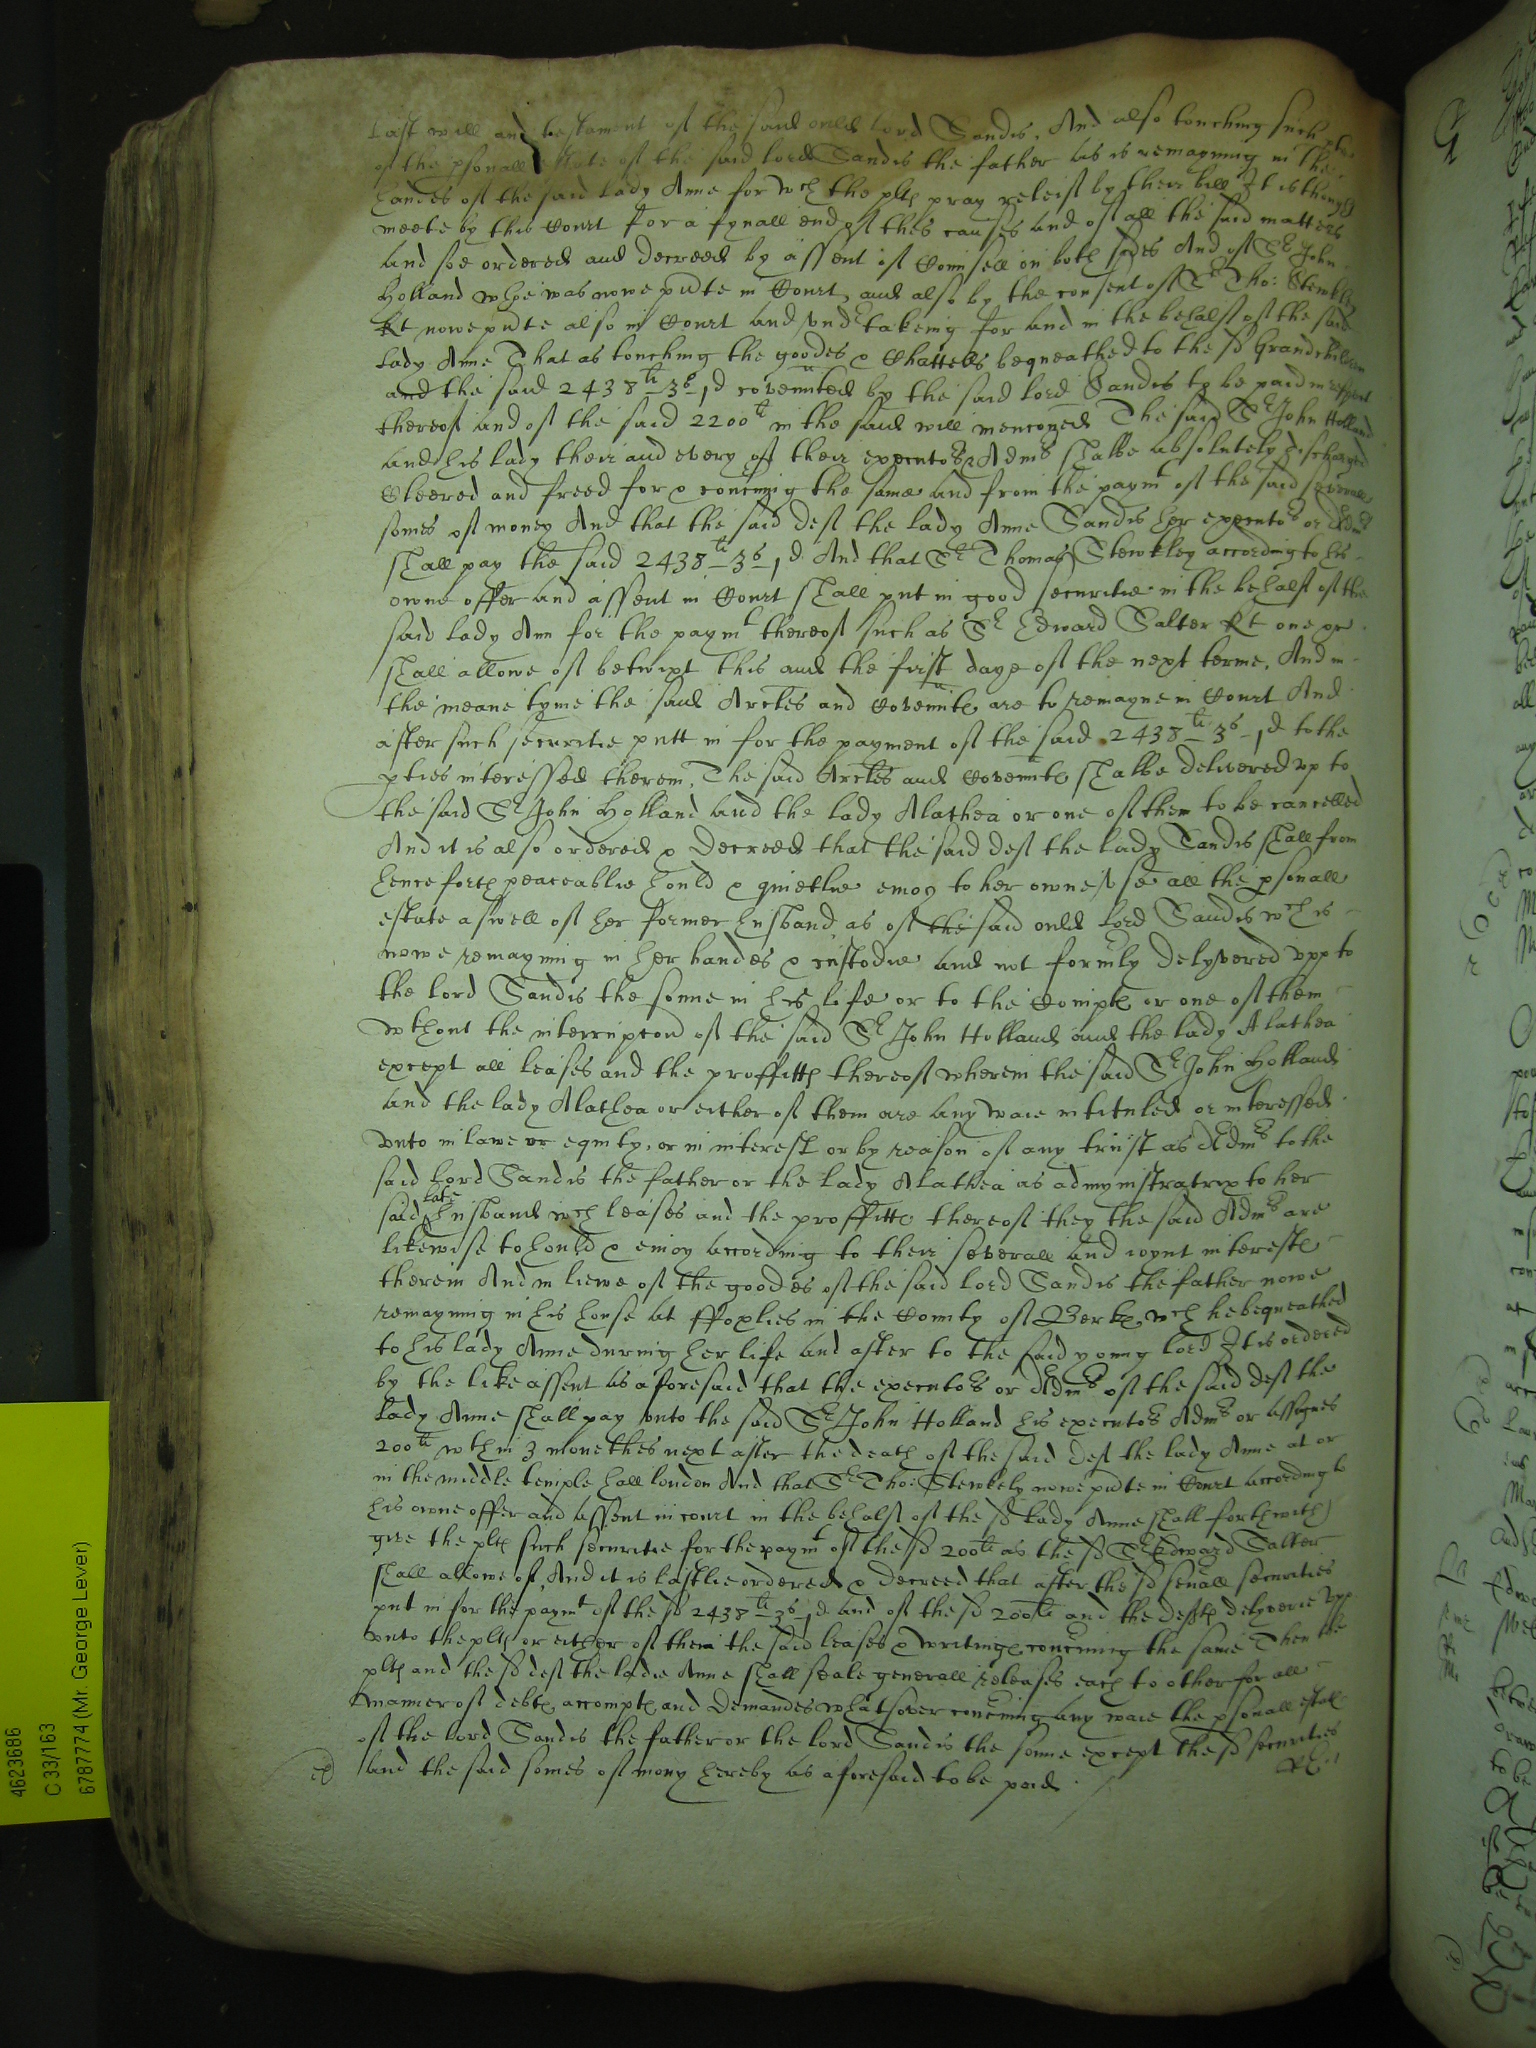 Last will and testament of the said ould Lord Sandis. And also touching such pte
of the psonall estate of the said lord Sandis the father as is remayning in the
handes of the said lady Anne for wch the plts pray releif by their bill It is thought
meete by this Court for a fynall end of thes causes and of all the said matters
and soe ordered and decreed by assent of Counsell on both sides And of Sr John
Holland whoe was nowe pnte in Court, and also by the consent of Sr Tho: Stewkley
Kt nowe pnte also in Court and undertakeing for and in the behalf of the said
lady Anne That as touching the goodes & Chattells bequeathed to the sd Grandchildren
and the said 2438li 3s 1d covennted by the said lord Sandis to be paid in respect
thereof and of the said 2200li in the said will menconed The said Sr John Holland
and his lady their and every of their executors Adms shalbe absolutely discharged
Cleered and freed for & concning the same and from the paymt of the said severall
somes of money And that the said deft the lady Anne Sandis her executors or Adms
shall pay the said 2438li 3s 1d And that Sr Thomas Stewkley according to his
owne offer and assent in Court shall put in good securitie in the behalf of the
said lady Ann for the paymt thereof such as Sr Edward Salter Kt one &c
shall allowe of betwixt this and the first daye of the next terme, And in
the meane tyme the said Arcles and Covennts are to remayne in Court And
after such securitie putt in for the payment of the said 2438li 3s 1d to the
pties interessed therein, The said Arcles and Covennts shalbe delivered up to
the said Sr John Holland and the lady Alathea or one of them to be cancelled
And it is also ordered & decreed that the said deft the lady Sandis shall from
henceforth peaceablie hould & quietlie enioy to her owne use all the psonall
estate aswell of her former husband as of the said ould lord Sandis wch is
nowe remayning in her handes & custodie and not formly delyvered upp to
the lord Sandis the sonne in his life or to the Complts or one of them
wthout the interrupcon of the said Sr John Holland and the lady Alathea
except all leases and the proffitts thereof wherein the said Sr John Holland
and the lady Alathea or either of them are any waie intituled or interessed
unto in lawe or equity, or in interest or by reason of any trust as Adms to the
said Lord Sandis the father or the lady Alathea as admynistratrix to her
said late husband wch leases and the proffitts thereof they the said Adms are
likewise to hould & enioy according to their severall and ioynt interests
therein And in liewe of the goodes of the said lord Sandis the father nowe
remayning in his house at ffoxlies in the County of Berks, wch he bequeathed
to his lady Anne during her life and after to the said young lord It is ordered
by the like assent as aforesaid that the executors or Adms of the said deft the
Lady Anne shall pay unto the said Sr John Holland his executors Adms or assignes
200li wthin 3 monethes next after the death of the said deft the lady Anne at or
in the middle temple hall london And that Sr Tho: Stewkely nowe pnte in Court according to
his owne offer and assent in court in the behalf of the sd Lady Anne shall forthwith
give the plts such securitie for the paymt of the sd 200li as the sd Sr Edward Salter
shall allowe of, And it is lastlie ordered & decreed that after the sd seuall securities
put in for the paymt of the sd 2438li 3s 1d and of the sd 200li and the defts delyverie upp
unto the plts or either of them the said leases & writings concning the same Then the
plts and the sd deft the ladie Anne shall seale generall releases each to other for all
manner of debts accompts and demandes whatsover concning any waie the psonall estate
of the lord Sandis the father or the lord Sandis the sonne except the sd securities
and the said somes of mony hereby as aforesaid to be paid
4623686
C 33/163
6787774 (Mr. George Lever)